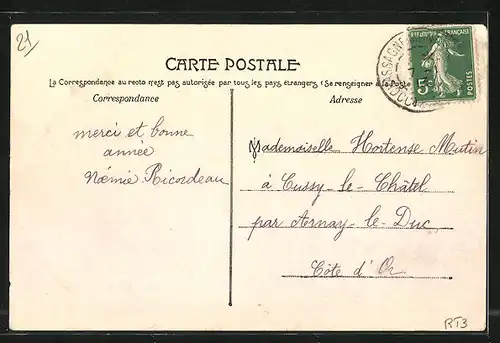 21
CARTE POSTALE
La Correspondance au recto n'est pas autorisée par tous les pays étrangers (Se renseigner à la Poste
Correspondance
Adresse
FRANÇAISE
5c
POSTES
merci et bonne
année
Noémie Ricordeau
Mademoiselle Hortense Mutin
à Cussy-le-Châtel
par Arnay-le-Duc
Côte d'Or
RT3